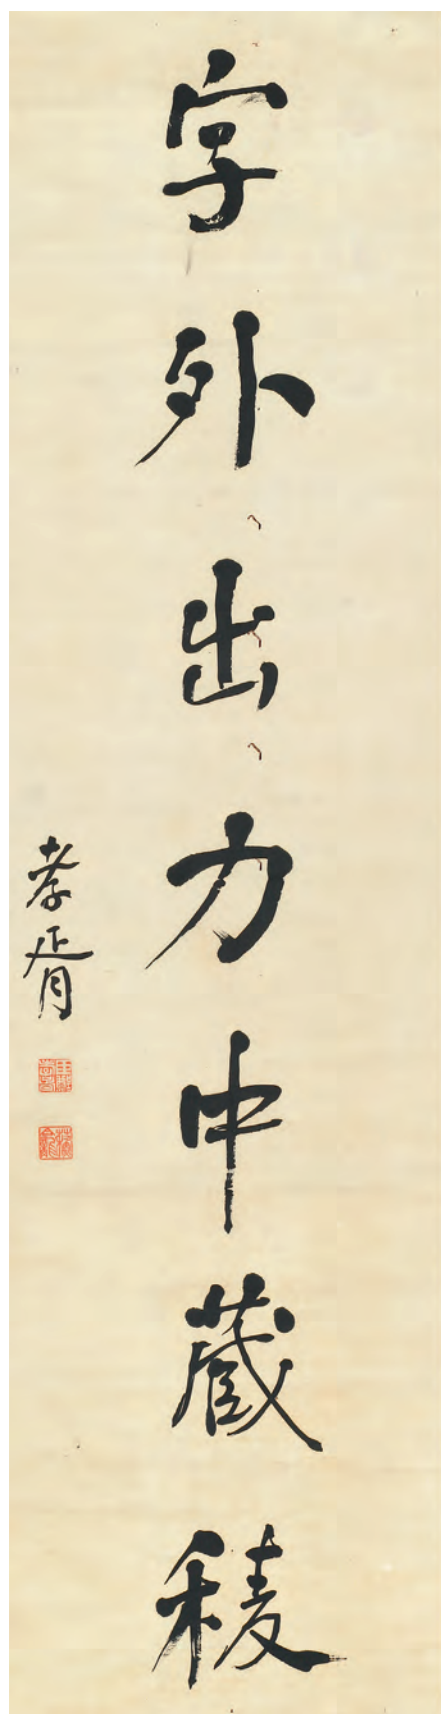 字外出力中藏稜
孝胥